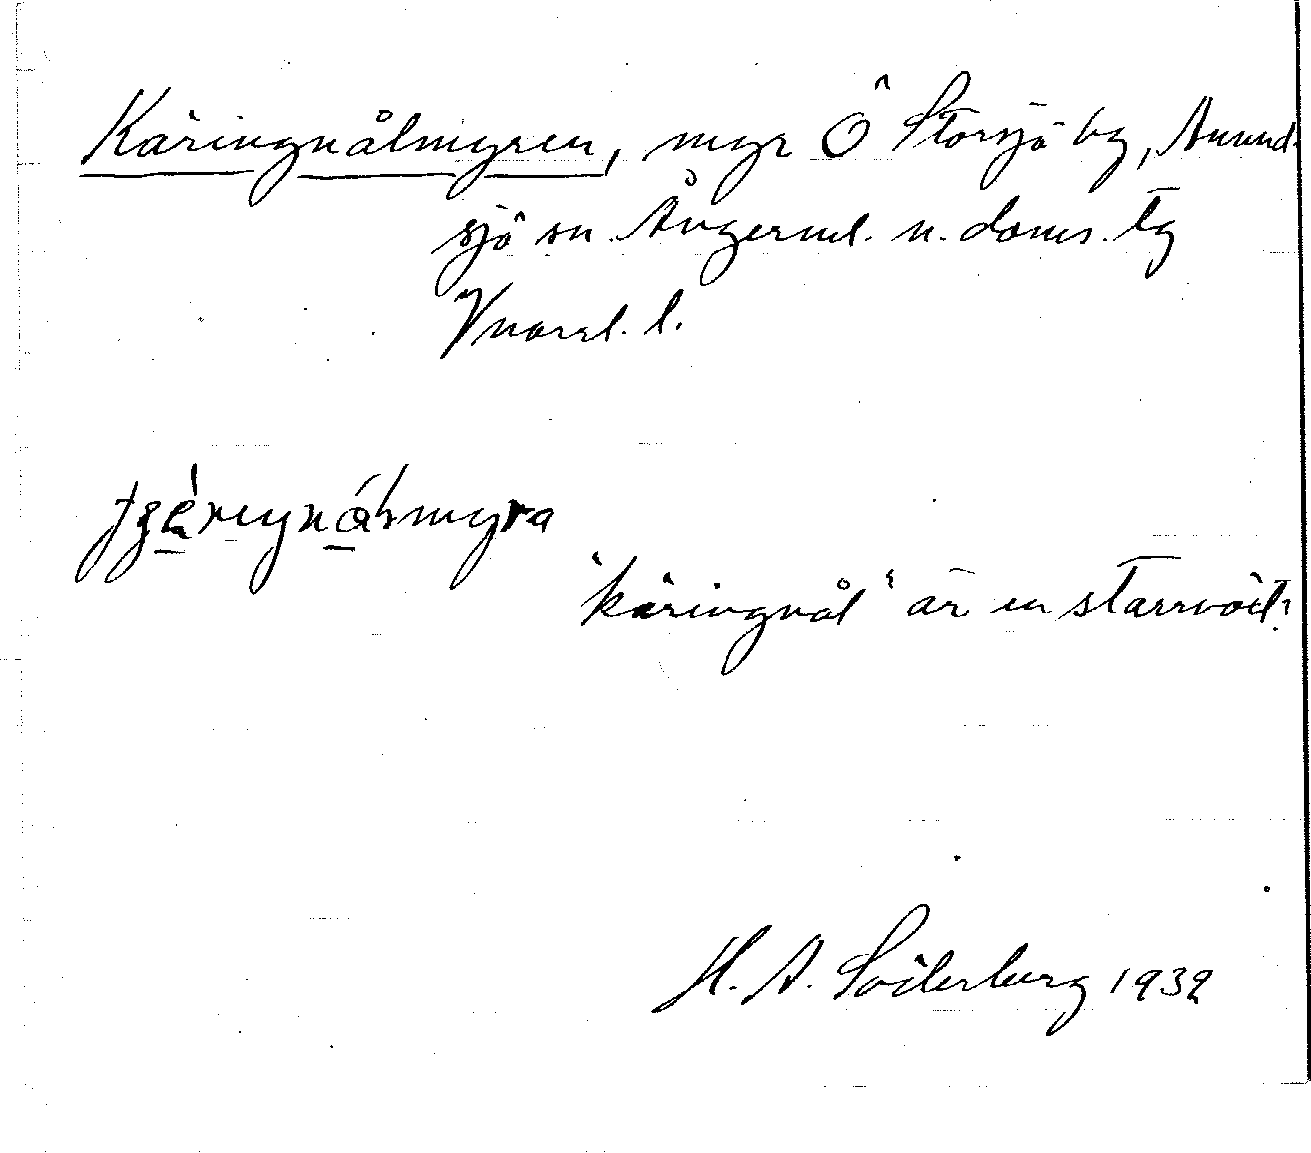 Käringnålmyren, myr Ö Storsjö by, Anund-
sjö sn. Ångerml. n. doms. tg
Vnorrl. l.
"käringnål" är en starrväxt.
H. A. Söderberg 1932